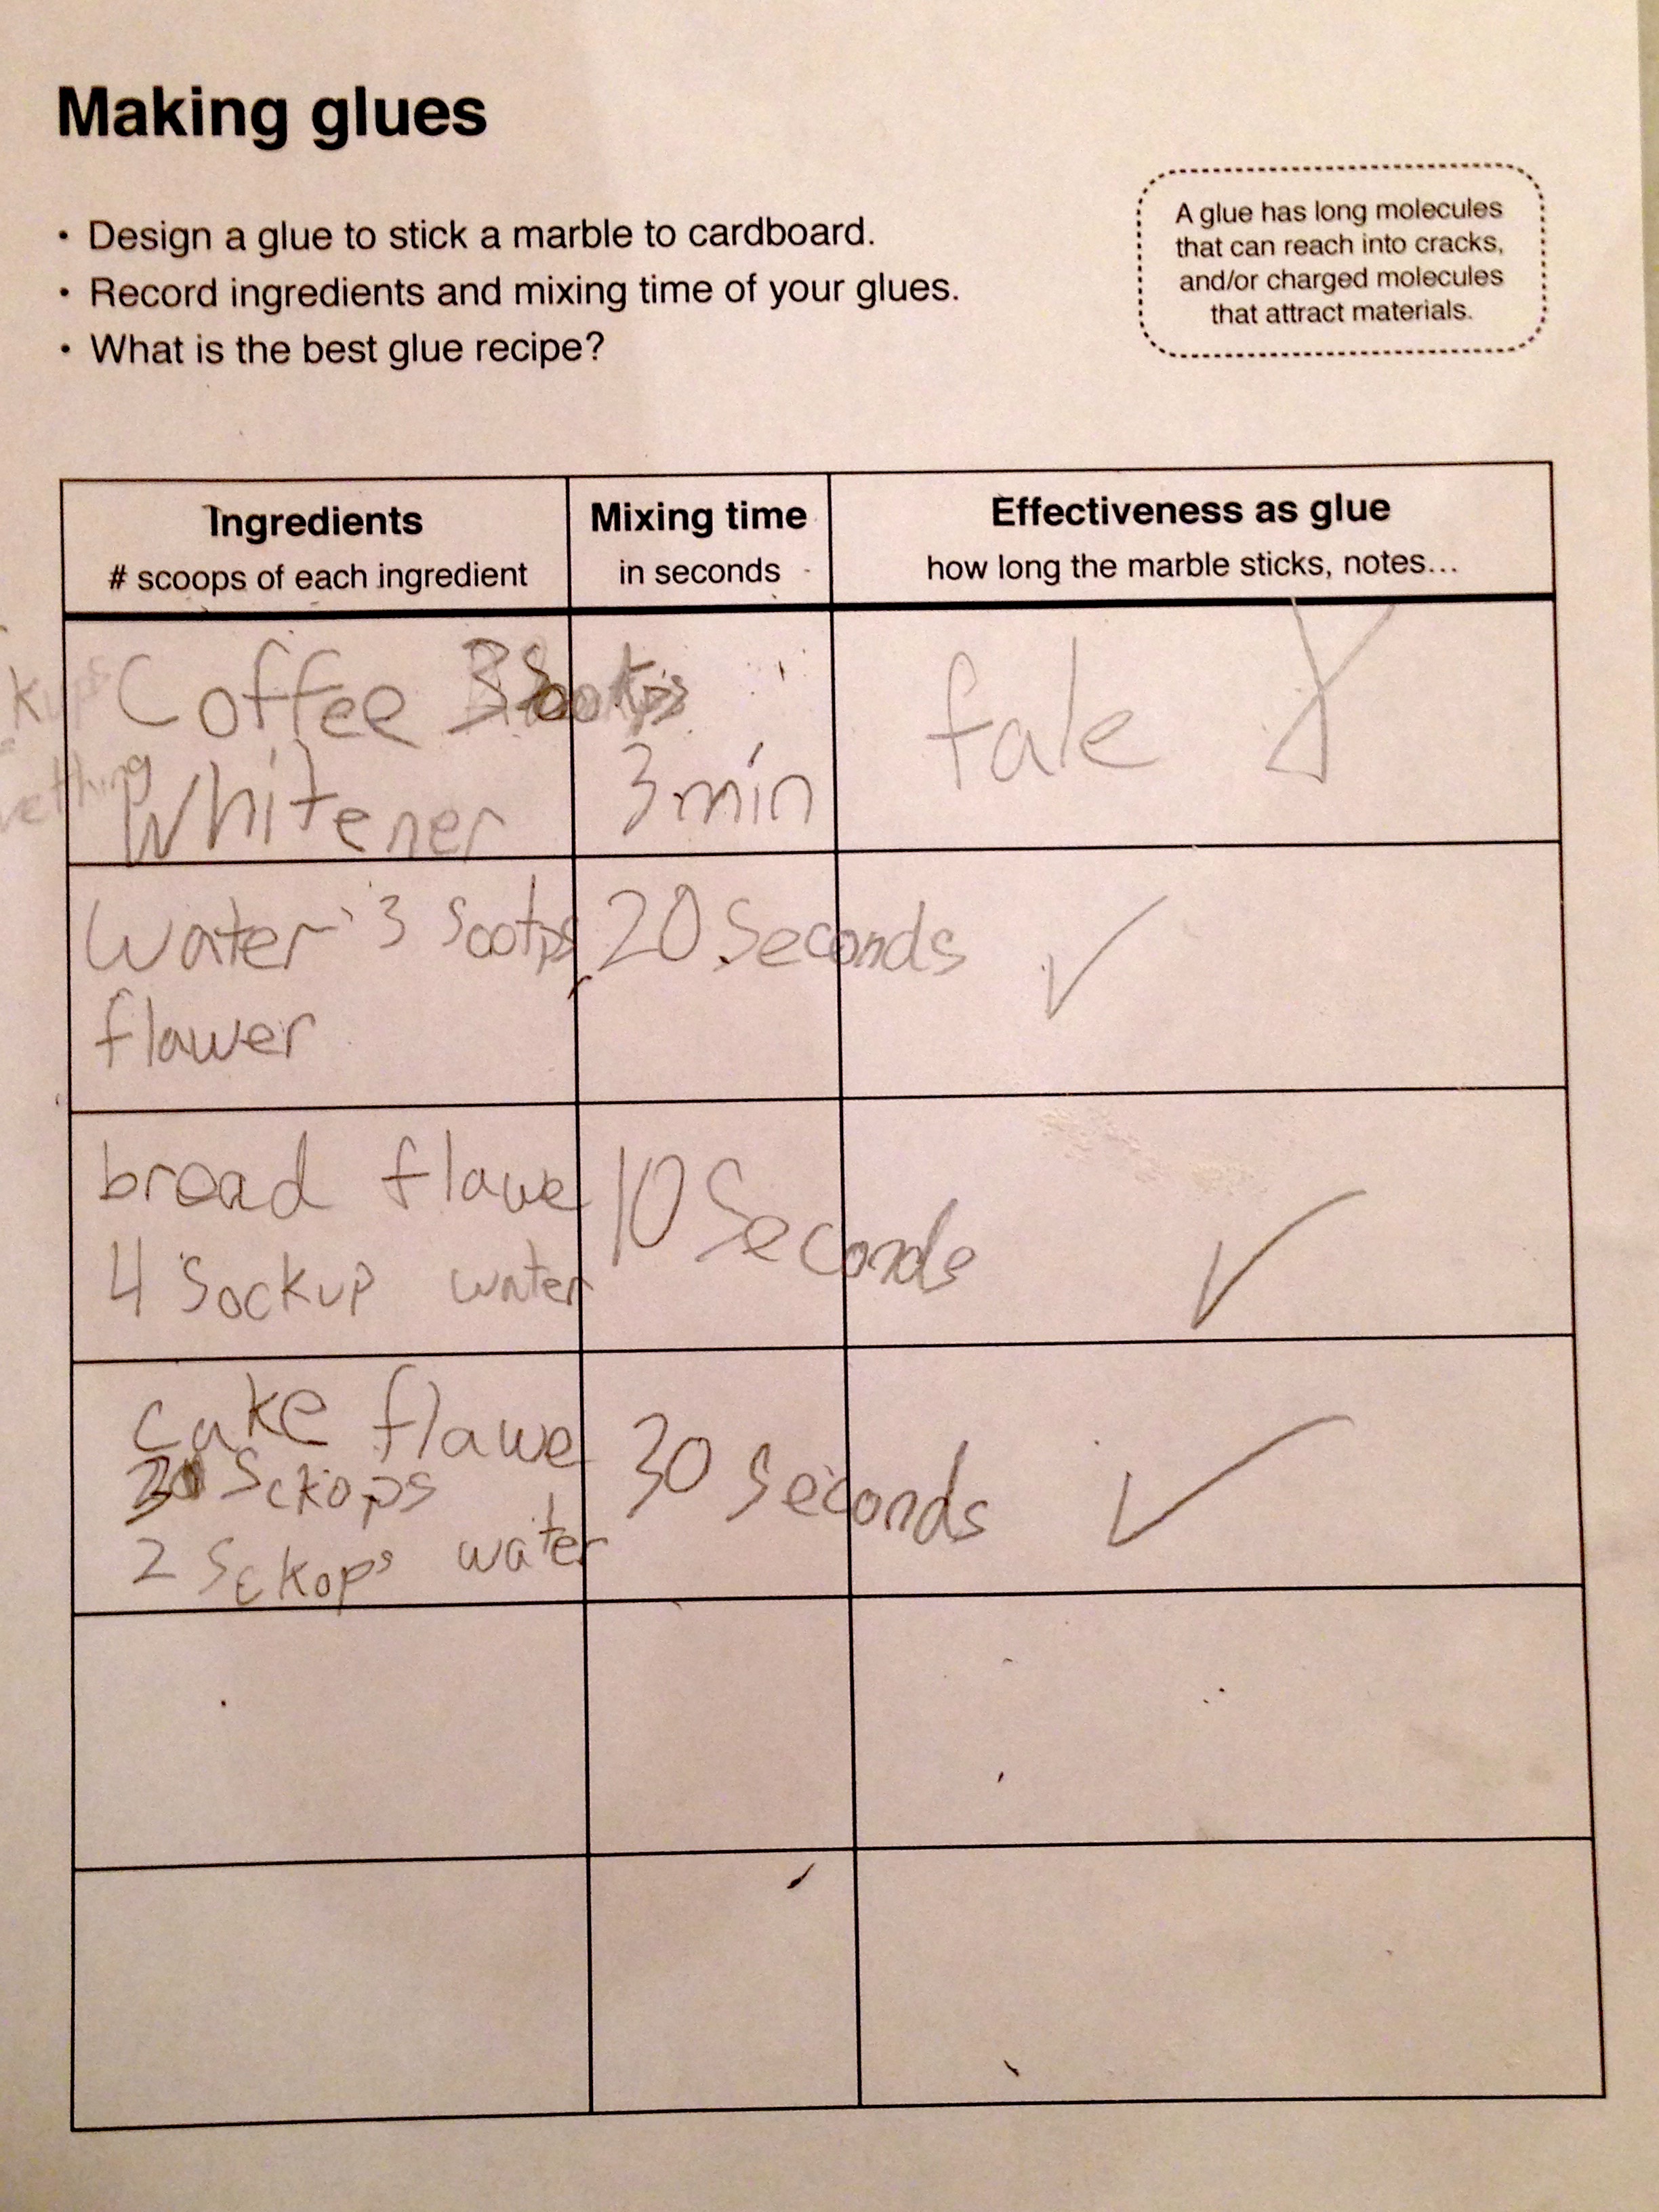 Making glues
• Design a glue to stick a marble to cardboard.
• Record ingredients and mixing time of your glues.
• What is the best glue recipe?
A glue has long molecules
that can reach into cracks,
and/or charged molecules
that attract materials.
Ingredients
# scoops of each ingredient
Mixing time
in seconds
Effectiveness as glue
how long the marble sticks, notes...
Coffee 3
Whitener
3 min
fale X
Water 3 Sootps
flawer
20 Seconds ✓
bread flawe
4 Sockup water
10 Seconds ✓
cake flawe
Sckops
2 Sckops water
30 Seconds ✓